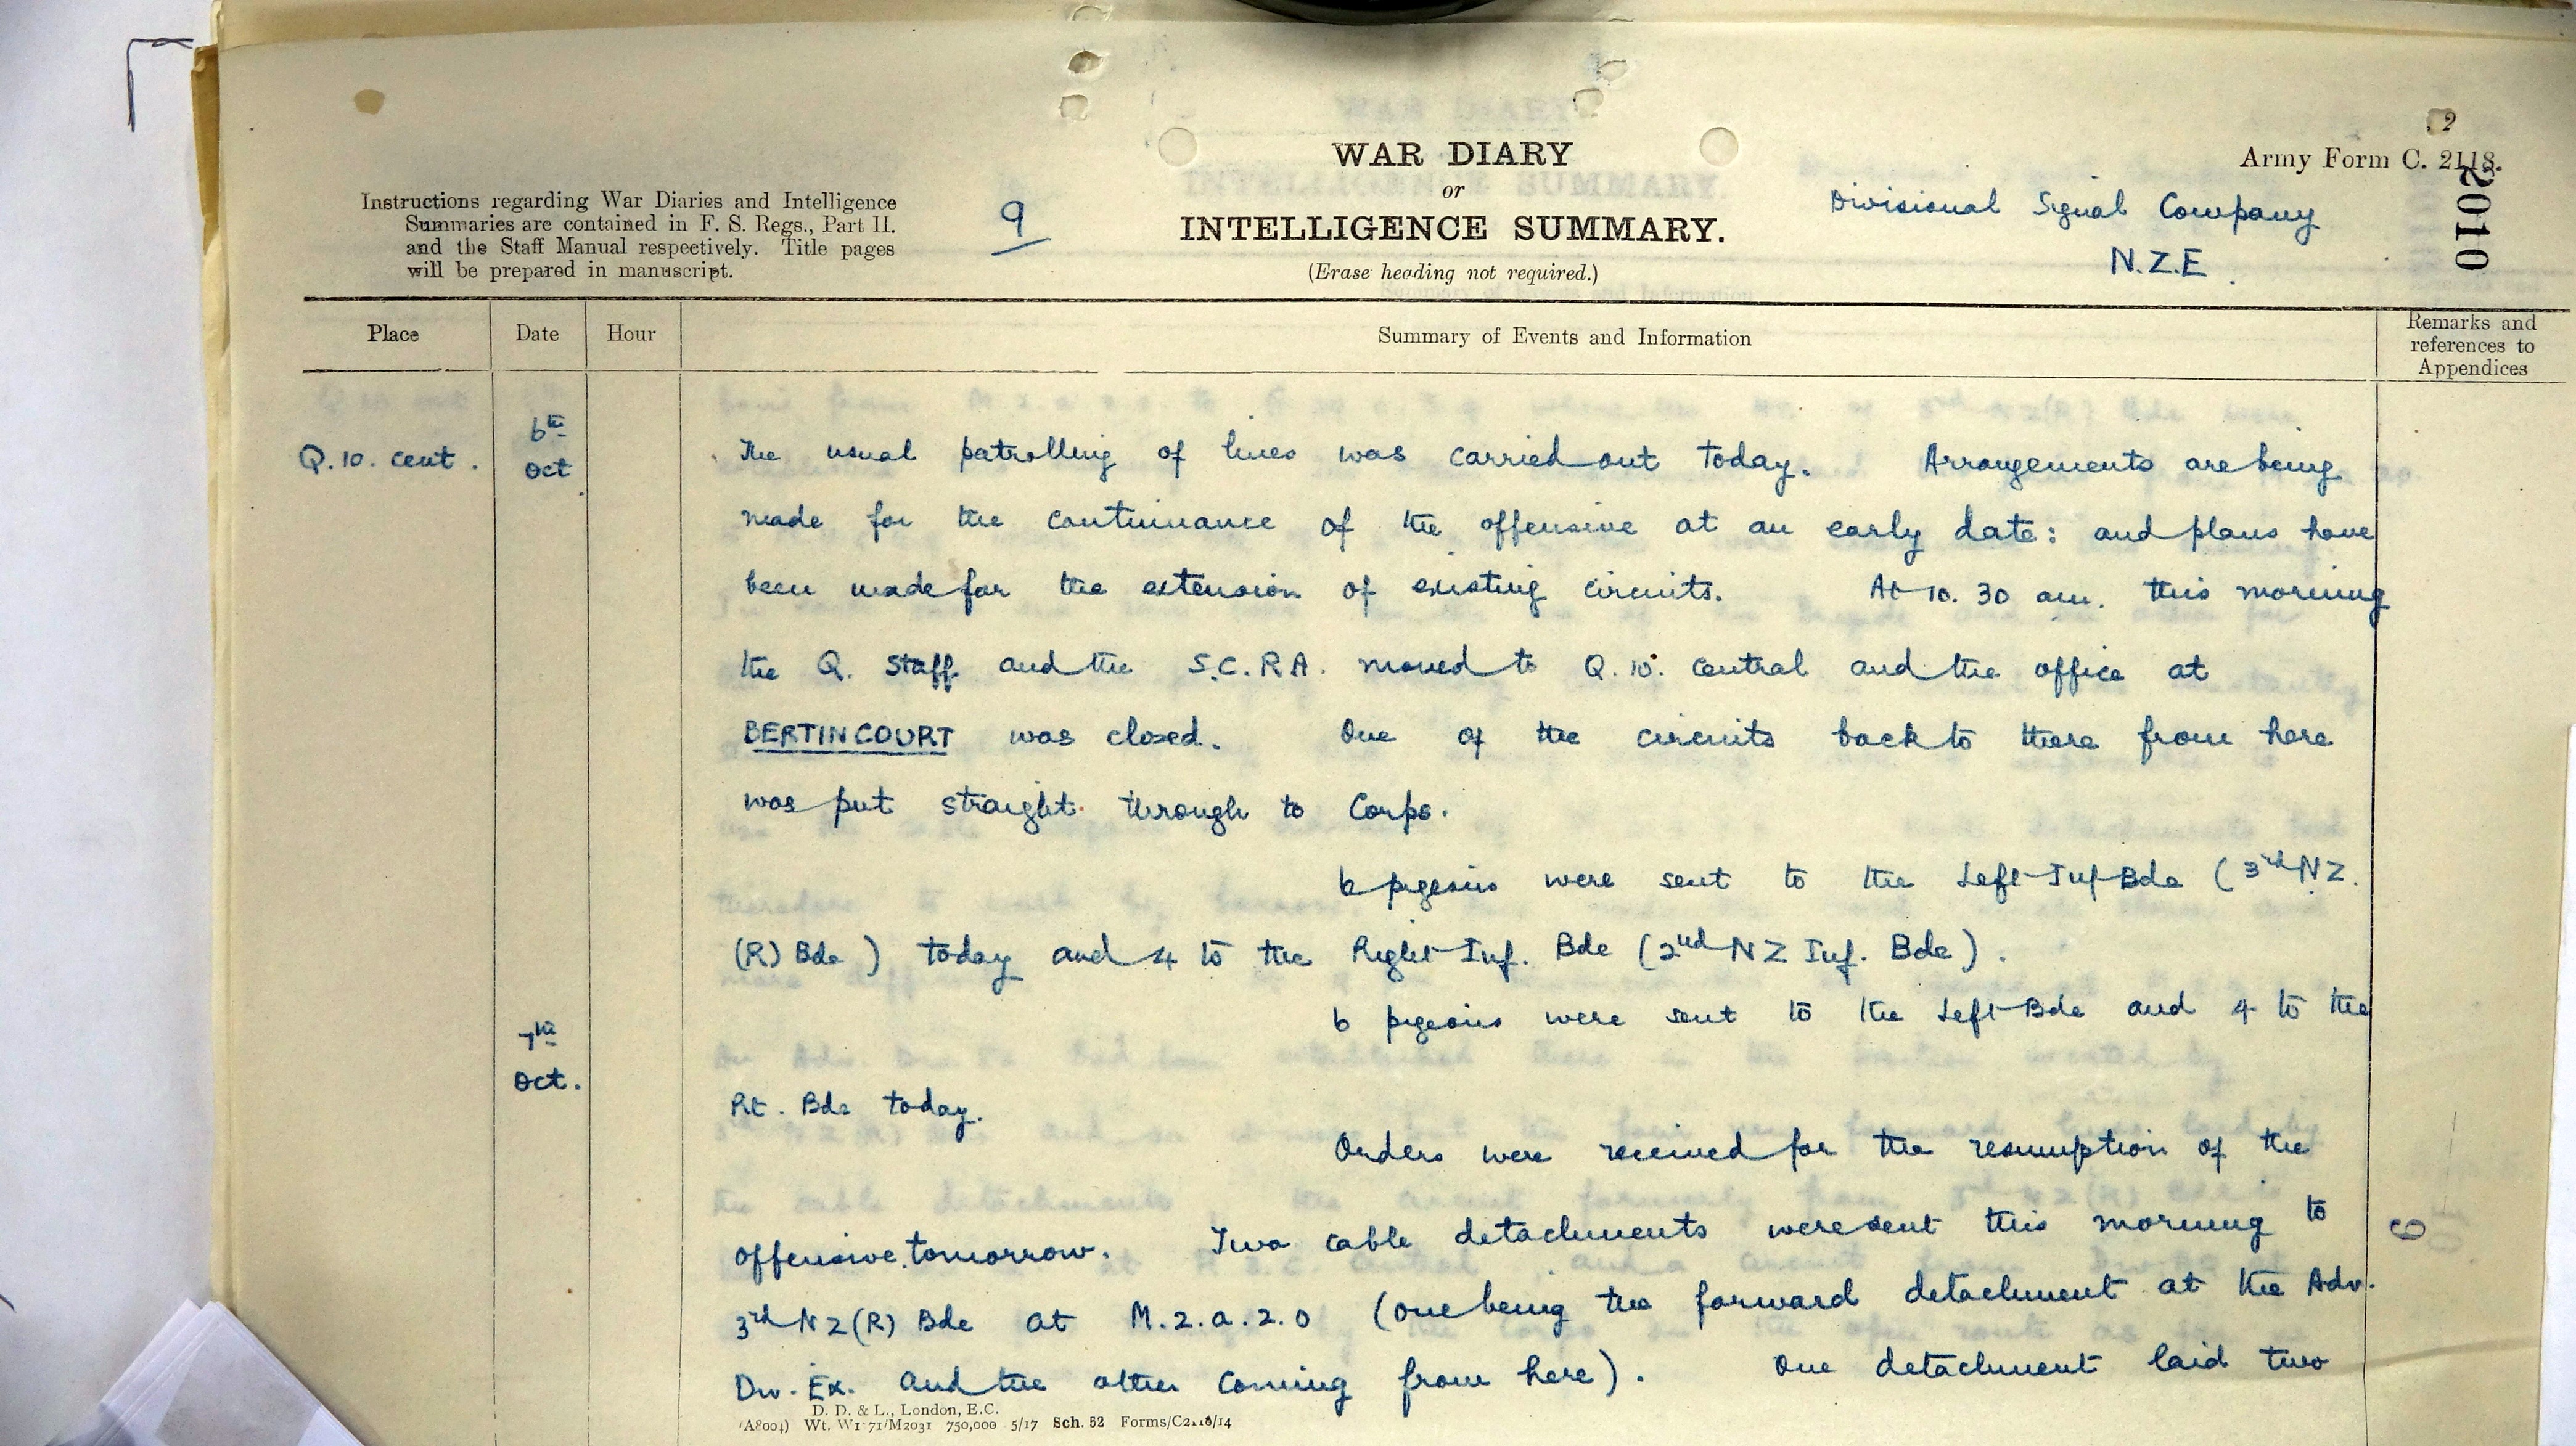 Army Form C. 2118.
2010
WAR DIARY
or
INTELLIGENCE SUMMARY.
(Erase heading not required.)
Instructions regarding War Diaries and Intelligence
Summaries are contained in F. S. Regs., Part II.
and the Staff Manual respectively. Title pages
will be prepared in manuscript.
9
Divisional Signal Company
N.Z.E.
Place
Date
Hour
Summary of Events and Information
Remarks and
references to
Appendices
Q.10. cent.
6th
Oct
The usual patrolling of lines was carried out today. Arrangements are being
made for the continuance of the offensive at an early date: and plans have
been made for the extension of existing circuits. At 10.30 am. this morning
the Q. Staff and the S.C.R.A. moved to Q.10. central and the office at
BERTINCOURT was closed. One of the circuits back to there from here
was put straight through to Corps.
6 pigeons were sent to the Left Inf Bde (3rd NZ.
(R) Bde) today and 4 to the Right Inf. Bde (2nd NZ Inf. Bde).
7th
Oct.
6 pigeons were sent to the Left Bde and 4 to the
Rt. Bde today.
Orders were received for the resumption of the
offensive tomorrow. Two cable detachments were sent this morning to
3rd NZ(R) Bde at M.2.a.2.0 (one being the forward detachment at the Adv.
Div. Ex. and the other coming from here). One detachment laid two
D. D. & L., London, E.C.
(A8004) Wt. W1771/M2031 750,000 5/17 Sch. 52 Forms/C2118/14